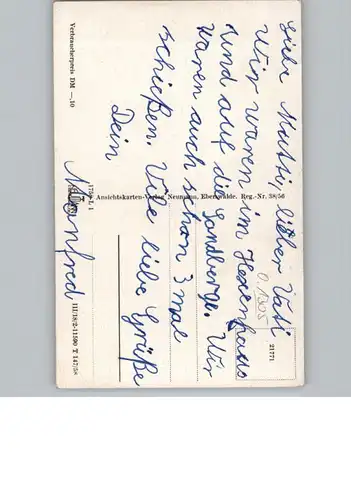 Liebe Mutti, lieber Vati
Wir waren im Hexenhaus
und auf die Sandberge. Wir
waren auch schon 3 mal
schießen. Viele liebe Grüße
Dein
Manfred
Verbraucherpreis DM —.10
Ansichtskarten-Verlag Neumann, Eberswalde. Reg.-Nr. 38/56
III/18/2-11590 T 147/58
21771
0.1303